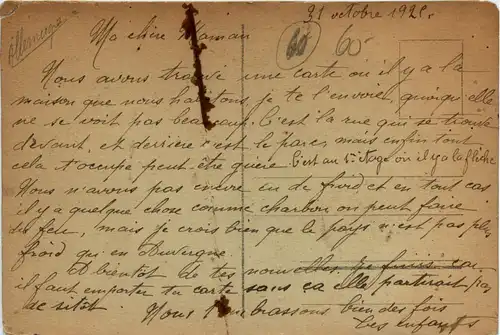 Allemagne
31 octobre 1921.
Ma chère Maman
60
Nous avons trouvé une carte ou il y a la
maison que nous habitons, je te l'envoie, quoiqu'elle
ne se voit pas beaucoup. C'est la rue qui se trouve
devant, et derrière c'est le parc, mais enfin tout
cela t'occupe peut-être guère. C'est au 1er étage ou il y a la flèche
Nous n'avons pas encore eu de froid et en tout cas
il y a quelque chose comme charbon on peut faire
du feu, mais je crois bien que le pays n'est pas plus
froid qu'en Auvergne
A bientôt de tes nouvelles je finis car
il faut emporter ta carte sans ça elle partirait pas
de sitôt Nous t'embrassons bien des fois
Tes enfants